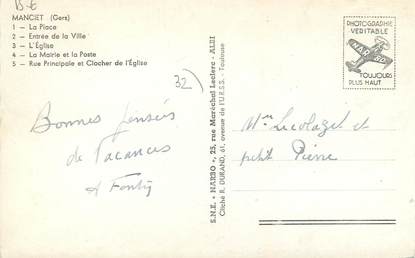 B-E
MANCIET (Gers)
1 – La Place
2 – Entrée de la Ville
3 – L'Église
4 – La Mairie et la Poste
5 – Rue Principale et Clocher de l'Église
32)
Bonnes pensées
de Vacances
S.N.E. « NARBO », 25, rue Maréchal Leclerc - ALBI
Cliché R. DURAND, 61, avenue de l'U.R.S.S. Toulouse
PHOTOGRAPHIE
VÉRITABLE
NARBO
TOUJOURS
PLUS HAUT
et
petit Pierre